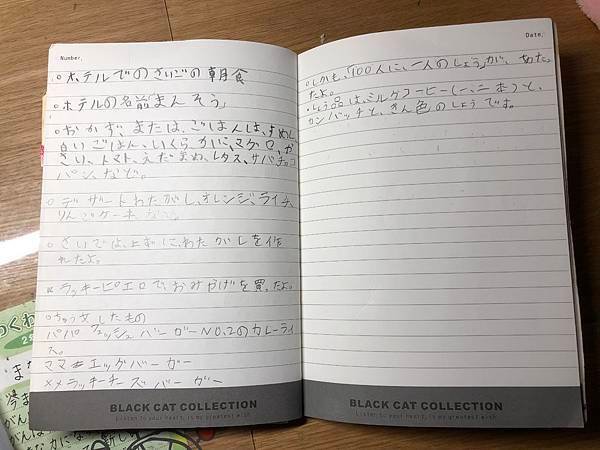 Number,
○ホテルでのさいごの朝食
○ホテルの名前「まんそう」
○おかず、または、ごはんは、すめし
白いごはん、いくら、かに、マグロ、や
さい、トマト、えだまめ、レタス、サバ、チョコ
パン、など。
○デザートわたがし、オレンジ、ライチ、
りんごケーキなど
○さいごは、上ずに、わたがしを作
れたよ。
ラッキーピエロで、おみやげを買ったよ。
○ちゅう文したもの
パパ フェッシュバーガーNO,2のカレーライ
ス。
ママ エッグバーガー
ラッキーチーズバーガー
BLACK CAT COLLECTION
Listen to your heart, is my greatest wish
Date,
○しかも、「100人に、一人のしょう」が、当た、た
よ。
しょう品は、ミルクコーヒー(一、二本)と、
カンバッチと、きん色のしょうです。
BLACK CAT COLLECTION
Listen to your heart, is my greatest wish